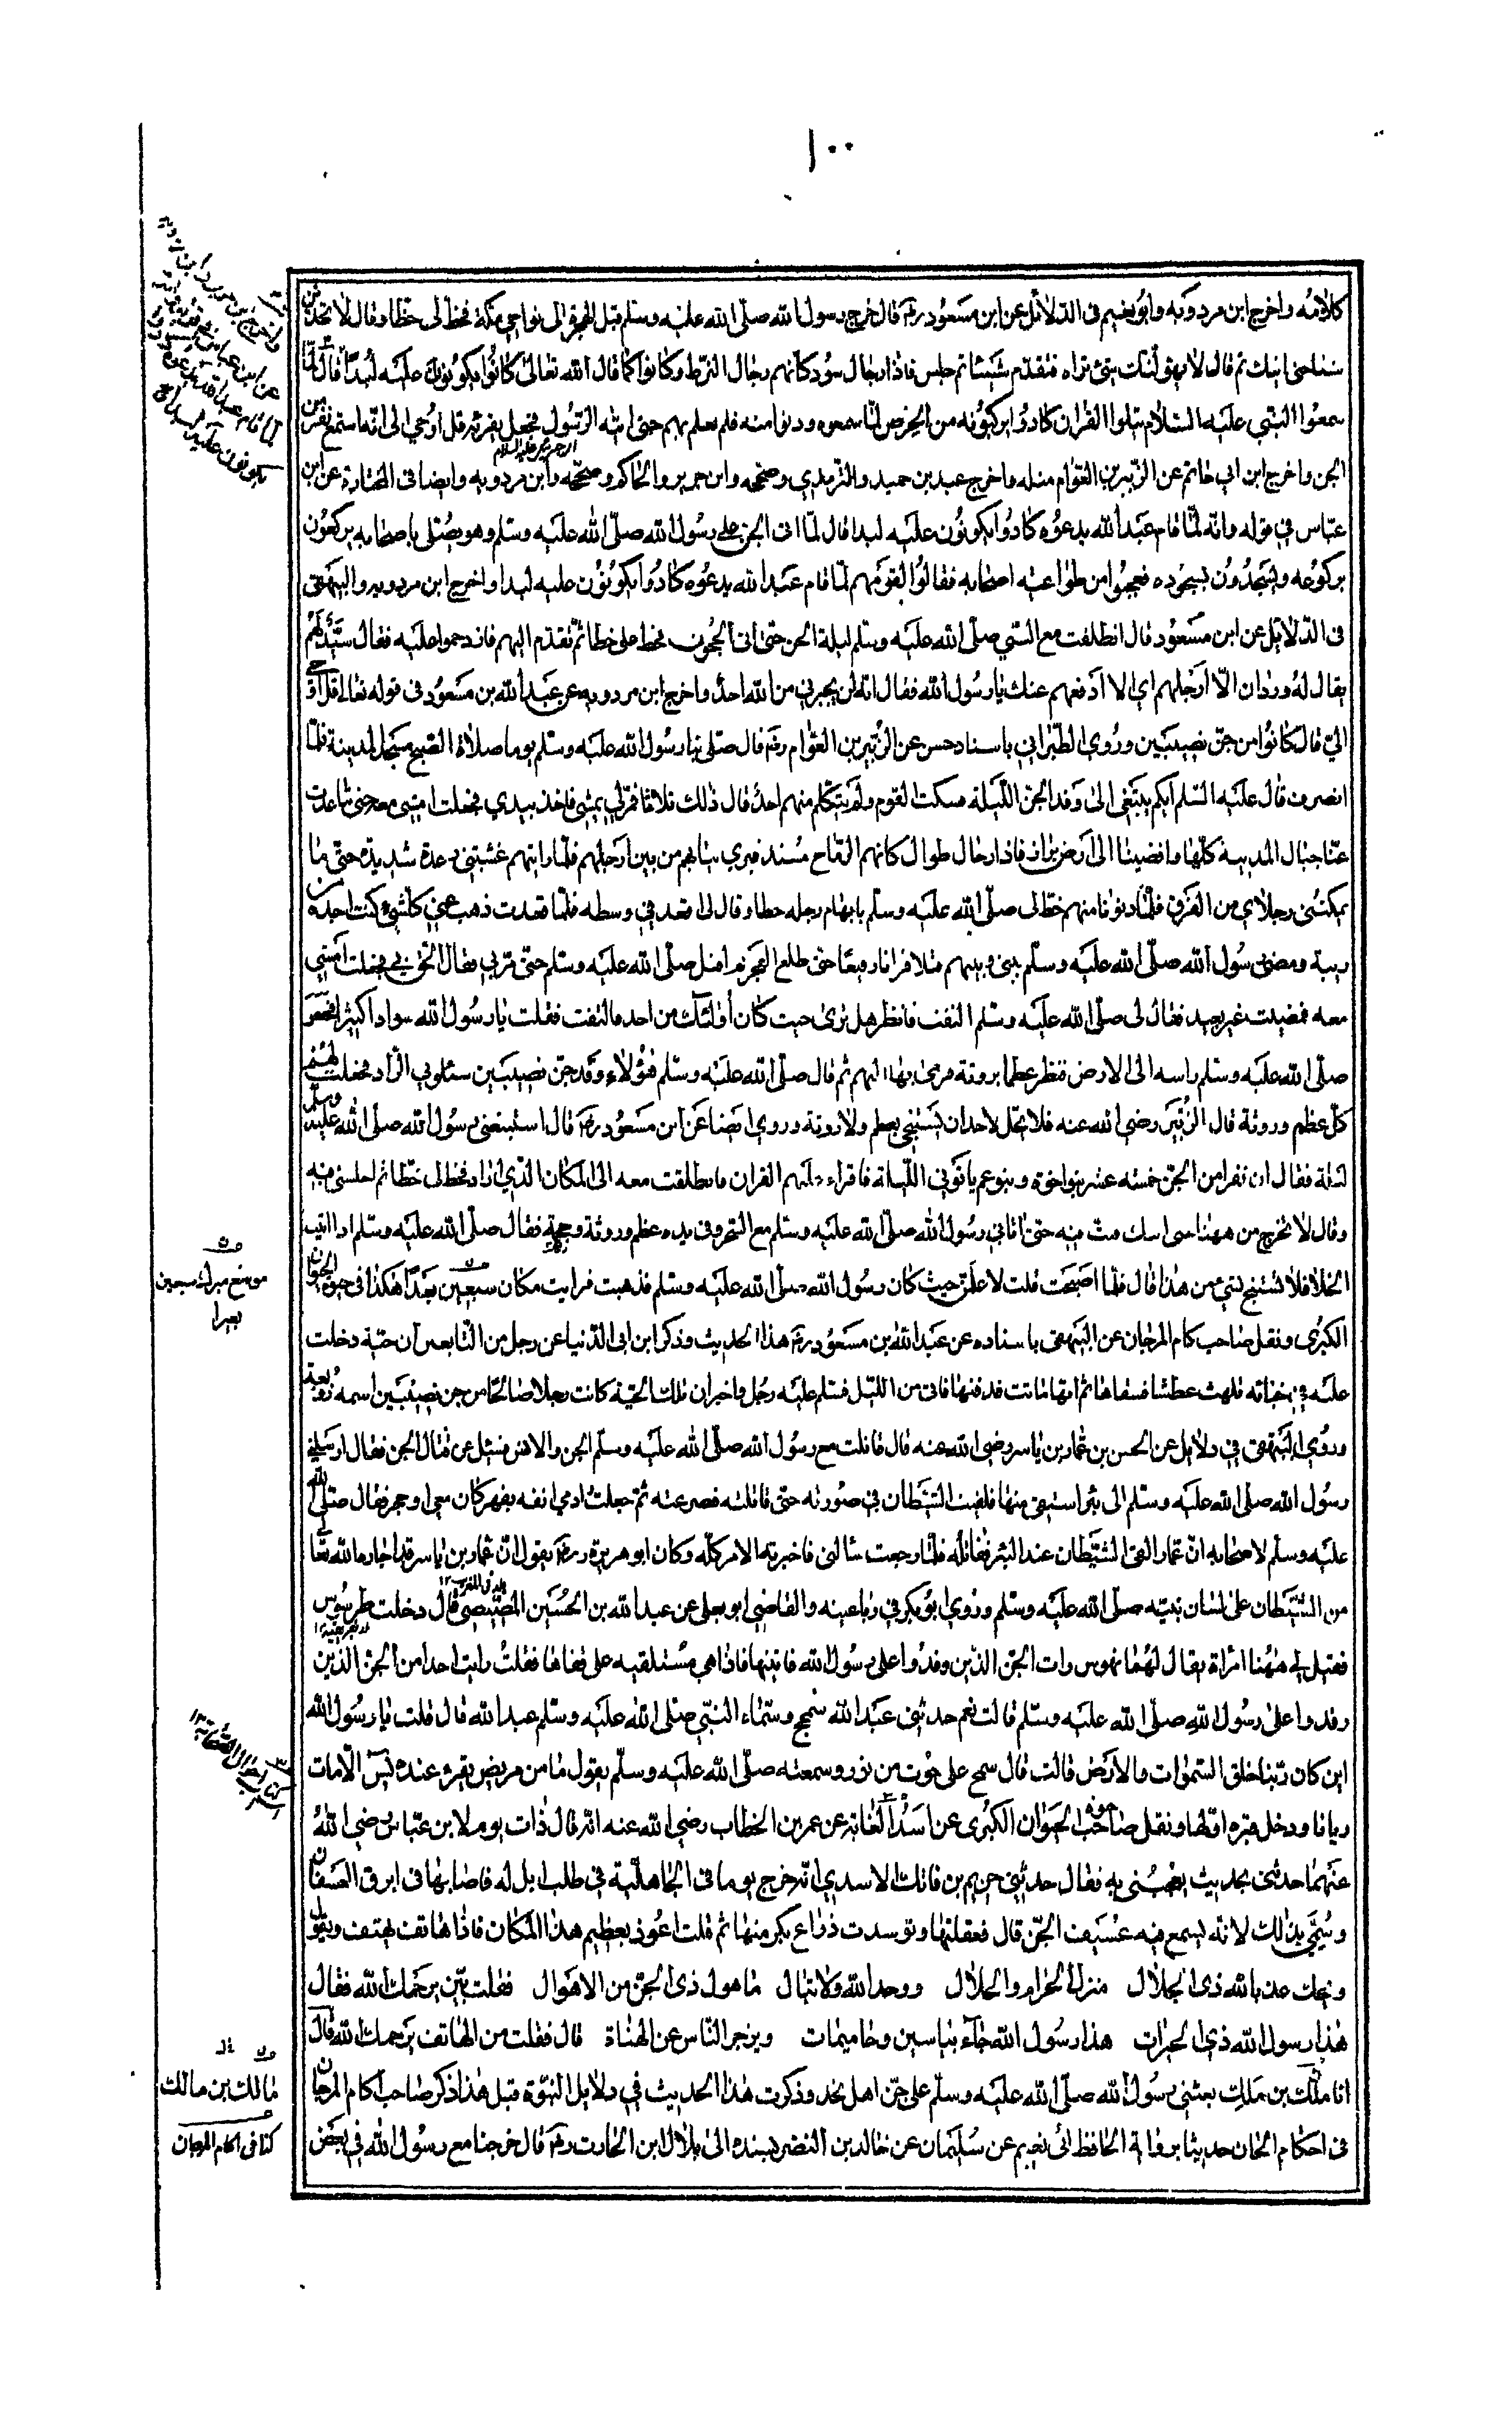 ١٠٠
كلامه واخرج ابن مردويه وابو نعيم فى الدلائل عن ابن مسعود رضى قال خرج رسول الله صلى الله عليه وسلم قبل الهجرة الى نواحى مكة فخط لى خطا وقال لا تحدثن
شيئا حتى اتيك ثم قال لا يهولنك شئ تراه فتقدم شيئا ثم جلس فاذا رجال سود كانهم رجال الزط وكانوا كما قال الله تعالى كادوا يكونون عليه لبدا قال لما
سمعوا النبي عليه السلام يتلوا القران كادوا يركبونه من الحرص لما سمعوه ودنوا منه فلم يعلم بهم حتى اتاه الرسول فجعل يقرئه قل اوحي الى انه استمع نفر من
الجن واخرج ابن ابي حاتم عن الزبير بن العوام مثله واخرج عبد بن حميد والترمذي وصححه وابن جرير والحاكم وصححه وابن مردويه وايضا فى المختارة عن ابن
عباس في قوله وانه لما قام عبد الله يدعوه كادوا يكونون عليه لبدا قال لما اتى الجن على رسول الله صلى الله عليه وسلم وهو يصلى باصحابه يركعون
بركوعه ويسجدون بسجوده فعجبوا من طواعية اصحابه فقالوا لقومهم لما قام عبد الله يدعوه كادوا يكونون عليه لبدا واخرج ابن مردويه والبيهقى
فى الدلايل عن ابن مسعود قال انطلقت مع النبي صلى الله عليه وسلم ليلة الجن حتى اتى الحجون فخط على خطا ثم تقدم اليهم فازدحموا عليه فقال سيد لهم
يقال له وردان الا ارحلهم اي الا ادفعهم عنك يا رسول الله فقال انه لن يجيرني من الله احد واخرج ابن مردويه عن عبد الله بن مسعود فى قوله تعالى قل اوحي
الي قال كانوا من جن نصيبين وروي الطبراني باسناد حسن عن الزبير بن العوام رضى قال صلى بنا رسول الله عليه وسلم يوما صلاة الصبح مسجد المدينة فلما
انصرف قال عليه السلم ايكم يتبعنى الى وفد الجن الليلة فسكت القوم ولم يتكلم منهم احد قال ذلك ثلاثا فمر بي يمشي فاخذ بيدي فجعلت امشي معه حتى تباعدت
عنا جبال المدينة كلها وافضينا الى ارض براز فاذا رجال طوال كانهم الرماح مستدفري ثيابهم من بين ارجلهم فلما رايتهم غشيتني رعدة شديدة حتى ما
يمسكنى رجلاي من الفرق فلما دنونا منهم خط لى صلى الله عليه وسلم بابهام رجله خطا وقال لى اقعد في وسطه فلما قعدت ذهب عني كل شيء كنت اجده من
ريبة ومضى رسول الله صلى الله عليه وسلم بينى وبينهم فتلا قرانا رفيعا حتى طلع الفجر ثم اقبل صلى الله عليه وسلم حتى مر بي فقال الحق بي فجعلت امشي
معه فمضيت غير بعيد فقال لى صلى الله عليه وسلم التفت فانظر هل ترى حيث كان اولئك من احد فالتفت فقلت يا رسول الله سوادا كثيرا فخفض
صلى الله عليه وسلم راسه الى الارض فنظر عظما بروثة فرمى بها اليهم ثم قال صلى الله عليه وسلم هؤلاء وفد جن نصيبين سئلوني الزاد فجعلت لهم
كل عظم وروثة قال الزبير رضي الله عنه فلا يحل لاحد ان يستنجي بعظم ولا روثة وروي ايضا عن ابن مسعود رضى قال استتبعنى رسول الله صلى الله عليه وسلم
ليلة فقال ان نفرا من الجن خمسة عشر بنو اخوة وبنو عم ياتوني الليلة فاقراء عليهم القران فانطلقت معه الى المكان الذي اراد فخط لى خطا ثم اجلسنى فيه
وقال لا تخرج من ههنا حتى اتيك فبت فيه حتى اتاني رسول الله صلى الله عليه وسلم مع السحر وفى يده عظم وروثة وحممة فقال صلى الله عليه وسلم اذا اتيت
الخلا فلا تستنج بشيء من هذا قال فلما اصبحت قلت لاعلمن حيث كان رسول الله صلى الله عليه وسلم فذهبت فرايت مكان سبعين بعيرا هكذا فى حيوة الحيوان
الكبرى ونقل صاحب اكام المرجان عن البيهقى باسناده عن عبد الله بن مسعود رضى هذا الحديث وذكر ابن ابى الدنيا عن رجل من التابعين ان حية دخلت
عليه في خبائه تلهث عطشا فسقاها ثم انها ماتت فدفنها فاتى من الليل فسلم عليه رجل واخبر ان تلك الحية كانت رجلا صالحا من جن نصيبين اسمه زوبعة
وروي البيهقى في دلايل عن الحسن بن عمار بن ياسر رضى الله عنه قال قاتلت مع رسول الله صلى الله عليه وسلم الجن والانس فسئل عن قتال الجن فقال ارسلني
رسول الله صلى الله عليه وسلم الى بئر استقى منها فلقيت الشيطان في صورته حتى قاتلنى فصرعته ثم جعلت ادمي انفه بفهر كان معي او حجر فقال صلى الله
عليه وسلم لاصحابه ان عمارا لقى الشيطان عند البئر فقاتله فلما رجعت سألنى فاخبرته الامر كله وكان ابو هريرة رضى يقول ان عمار بن ياسر قد اجاره الله تعالى
من الشيطان على لسان نبيه صلى الله عليه وسلم وروي ابو بكر في رباعيته والقاضي ابو يعلى عن عبد الله بن الحسين المصيصي قال دخلت طرسوس
فقيل لي ههنا امراة يقال لها نهوس رات الجن الذين وفدوا على رسول الله فاتيتها فاذا هي مستلقية على قفاها فقلت رايت احدا من الجن الذين
وفدوا على رسول الله صلى الله عليه وسلم قالت نعم حدثنى عبد الله سمحج وسماه النبي صلى الله عليه وسلم عبد الله قال قلت يا رسول الله
اين كان ربنا خلق السموات والارض قالت قال سمحج على حوت من نور وسمعته صلى الله عليه وسلم يقول ما من مريض يقرء عنده يس الا مات
ريانا ودخل قبره ونقل صاحب حيوة الحيوان الكبرى عن اسد الغابة عن عمر بن الخطاب رضي الله عنه انه قال ذات يوم لابن عباس رضي الله
عنهما حدثنى بحديث يعجبنى به فقال حدثني خريم بن فاتك الاسدي انه خرج يوما فى الجاهلية في طلب ابل له فاصابها فى ابرق العسفان
وسمي بذلك لانه يسمع فيه عسيف الجن قال فعقلتها وتوسدت ذراع بكر منها ثم قلت اعوذ بعظيم هذا المكان فاذا هاتف يهتف ويقول
ويحك عذ بالله ذى الجلال منزل الحرام والحلال ووحد الله ولا تبال ما هول ذى الجن من الاهوال فقلت بين يرحمك الله فقال
هذا رسول الله ذي الخيرات هذا رسول الله جاء بياسين وحاميمات ويزجر الناس عن الهناة قال فقلت من الهاتف يرحمك الله قال
انا ملك بن ملك بعثنى رسول الله صلى الله عليه وسلم على جن اهل نجد وذكرت هذا الحديث في دلايل النبوة قبل هذا ذكر صاحب اكام المرجان
فى احكام الجان حديثا برواية الحافظ ابى نعيم عن سليمان عن خالد بن النضر بسنده الى بلال ابن الحارث رضى قال خرجنا مع رسول الله في بعض
موضع مبرك سبعين
بعيرا
مالك بن مالك
كذا فى اكام المرجان